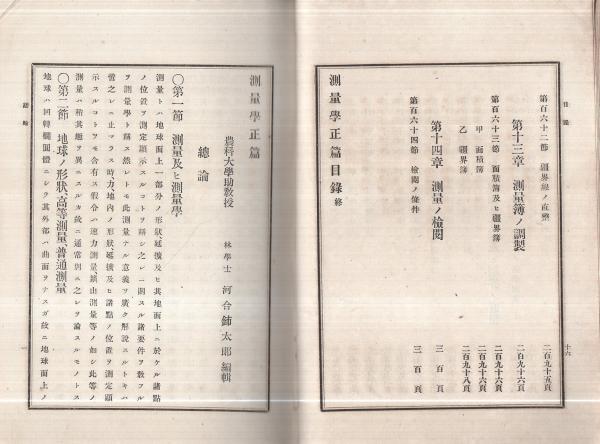 目錄
十六
第百六十二節 疆界線ノ直整
二百九十五頁
第十三章 測量簿ノ調製
二百九十六頁
第百六十三節 面積簿及ヒ疆界簿
二百九十六頁
甲 面積簿
二百九十六頁
乙 疆界簿
二百九十八頁
第十四章 測量ノ檢閱
三百頁
第百六十四節 檢閱ノ條件
三百頁
測量學正篇目錄 終
測量學正篇
農科大學助敎授 林學士 河合鈰太郎編輯
總論
〇第一節 測量及ヒ測量學
測量トハ地球面上一部分ノ形狀延擴及ヒ其地面上ニ於ケル諸點
ノ位置ヲ測定顯示スルコトヲ謂ヒ之レニ關スル諸要件ヲ敎フル
ヲ測量學ト謂フ然レトモ此測量ナル意義ヲ廣ク解說スルトキハ
啻之レニ止マラス時、力、地內ノ形狀延擴及ヒ諸點ノ位置ヲ測定顯
示スルコトヲモ含有ス假令ハ速力測量、鑛山測量等ノ如シ此等ノ
測量ハ稍其趣ヲ異ニスルカ故ニ通常別ニ之レヲ論スルモノトス
〇第二節 地球ノ形狀、高等測量、普通測量
地球ハ回轉橢圓體ニシテ其外部ハ曲面ヲナスガ故ニ地球面上ノ
總論
一